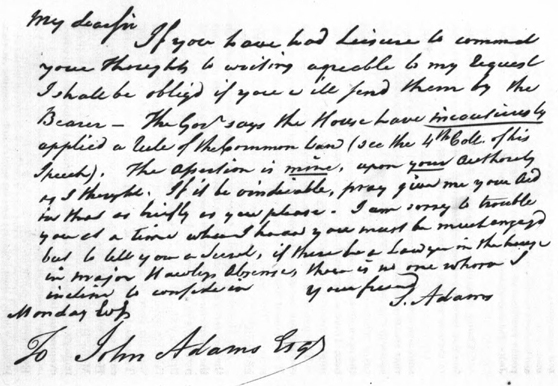 My dear Sir
If you have had Leisure to commit
your Thoughts to writing agreable to my Request
I shall be obligd if you will send them by the
Bearer — The Govr says the House have incautiously
applied a Rule of the Common Law (see the 4th Coll. of his
Speech). The Assertion is mine, upon your Authority
as I thought. If it be vindicable, pray give me your Aid
in that as briefly as you please. I am sorry to trouble
you at a time when I know you must be much engagd
but to tell you a Secret, if there be a Lawyer in the house
in Major Hawleys Absence, there is no one whom I
incline to confide in
your friend
S. Adams
Monday Evg
To John Adams Esqr